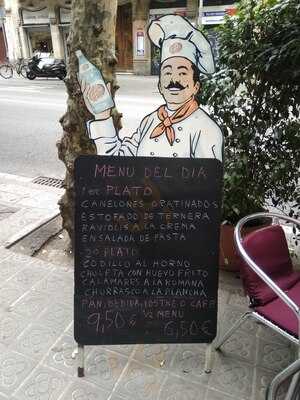 MENU DEL DIA
1er PLATO
CANELONES GRATINADOS
ESTOFADO DE TERNERA
RAVIOLIS A LA CREMA
ENSALADA DE PASTA
2º PLATO
CODILLO AL HORNO
CHULETA CON HUEVO FRITO
CALAMARES A LA ROMANA
CHURRASCO A LA PLANCHA
PAN, BEBIDA, POSTRE O CAFE
9,50€ 1/2 MENU 6,50€